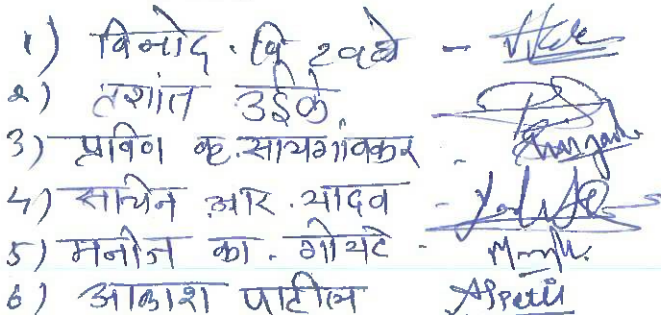 १) विनोद . वि रवढे -
२) प्रशांत उईके
3) प्रविण क. सायगांवकर -
4) सचिन आर. यादव -
5) मनोज का. गोयटे -
6) आकाश पाटील APatil